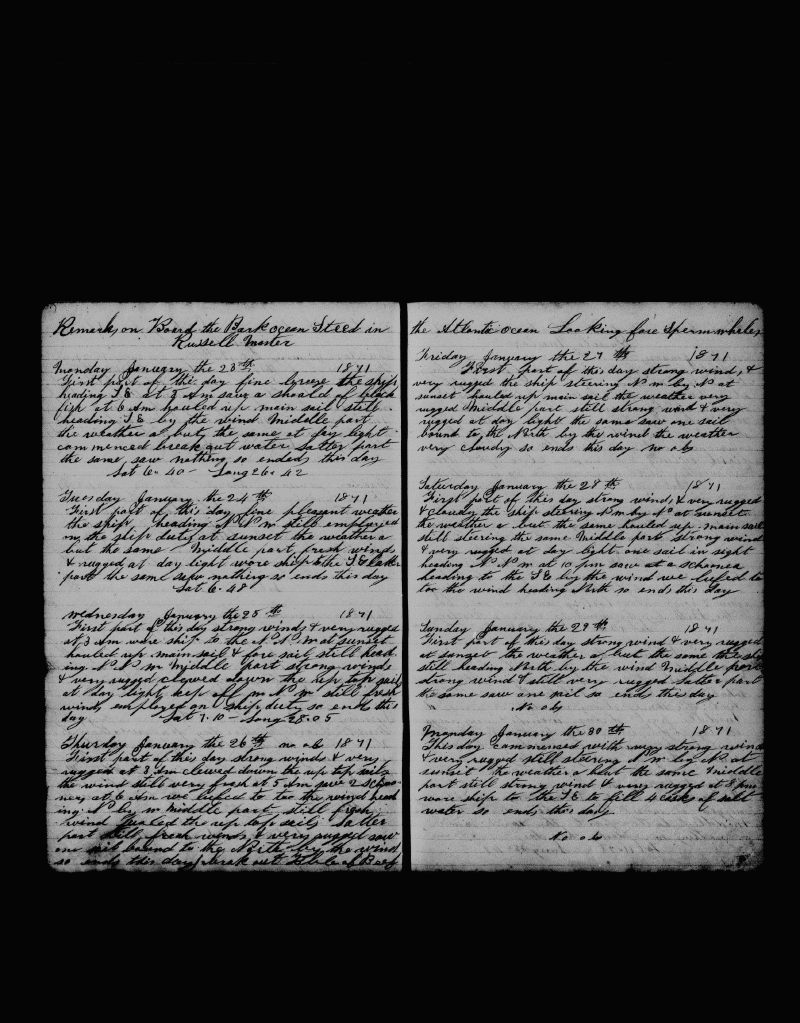 Remarks on Board the Bark ocean Steed in
Russell master
Monday January the 23th 1871
First part of this day fine breeze the ship
heading S E at 3 Am saw a shoald of black
fish at 6 Am hauled up main sail still
heading S E by the wind Middle part
the weather a but the same at day light
commenced break out water Latter part
the same saw nothing so ends this day
Lat 6-40 - Long 26-42
Tuesday January the 24th 1871
First part of this day fine pleasent weather
the ship heading N N W still employed
in the ship duty at sunset the weather a
but the same Middle part fresh winds
& rugged at day light wore ship to the S E latter
part the same saw nothing so ends this day
Lat 6-48
Wednesday January the 25th 1871
First part of this day strong winds & very rugged
at 3 Am wore ship to the N N W at sunset
hauled up mainsail & fore sail still head
ing N N W Middle part strong winds
& very rugged clewed down the up top sail
at day light kep off N W still fresh
winds employed on ship duty so ends this
day Lat 7.10 - Long 28.05
Thursday January the 26th no ob 1871
First part of this day strong winds & very
rugged at 3 Am clewed down the up top sails
the wind still very fresh at 5 Am saw 2 schoo-
ners at 6 Am we lufied to too the wind head
ing N by W Middle part still fresh
wind the up top sails Latter
part still fresh winds & very rugged saw
one sail bound to the North by the wind
so ends this day break out of Beef
the Atlantic ocean Looking fore Sperm whales
Friday January the 27th 1871
First part of this day strong wind, &
very rugged the ship steering N W by N at
sunset hauled up main sail the weather very
rugged Middle part still strong wind & very
rugged at day light the same saw one sail
bound to the North by the wind the weather
very cloudy so ends this day no ob
Saturday January the 28th 1871
First part of this day strong wind, & very rugged
& cloudy the ship steering N W by N at sunset
the weather a but the same hauled up main sail
still steering the same Middle part strong wind
& very rugged at day light one sail in sight
heading N N W at 10 pm saw at a schooner
heading to the S E by the wind we lufied to
too the wind heading North so ends this Day
Sunday January the 29th 1871
First part of this day strong wind & very rugged
at sunset the weather a but the same the ship
still heading North by the wind Middle part
strong wind & still very rugged Latter part
the same saw one sail so ends this day
No ob
Monday January the 30th 1871
This day commenced with very strong wind
& very rugged still steering N W by N at
sunset the weather a but the same Middle
part still strong wind & very rugged at 8 pm
wore ship to the S E to fill 4 casks of salt
water so ends this day
No ob